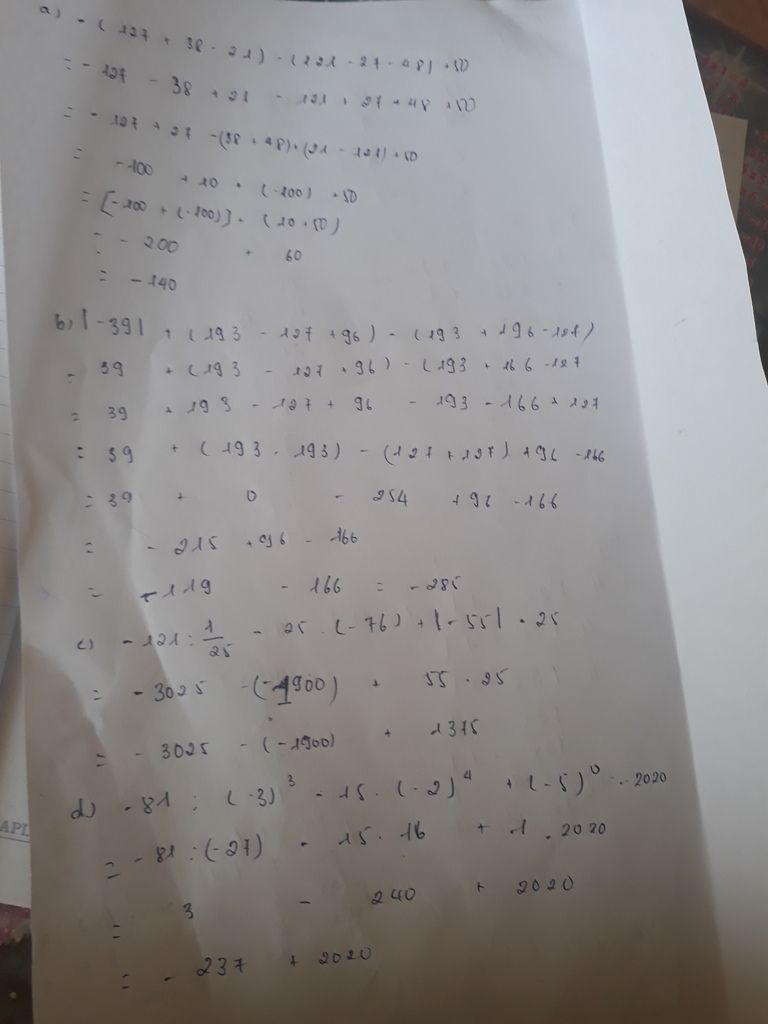 a) - ( 127 + 38 - 21 ) - ( 121 - 27 - 48 ) + 50
= - 127 - 38 + 21 - 121 + 27 + 48 + 50
= - 127 + 27 - (38 + 48) + (21 - 121) + 50
= -100 + 10 + (-100) + 50
= [-100 + (-100)] + (10 + 50)
= - 200 + 60
= - 140
b) |-39| + (193 - 127 + 96) - (193 + 196 - 127)
= 39 + (193 - 127 + 96) - (193 + 166 - 127
= 39 + 193 - 127 + 96 - 193 - 166 + 127
= 39 + (193 - 193) - (127 + 127) + 96 - 166
= 39 + 0 - 254 + 96 - 166
= - 215 + 96 - 166
= - 119 - 166 = - 285
c) - 121 : 1/25 - 25 . (-76) + |-55| . 25
= - 3025 - (-1900) + 55 . 25
= - 3025 - (-1900) + 1375
d) - 81 : (-3)³ - 15 . (-2)⁴ + (-5)⁰ . 2020
= - 81 : (-27) - 15 . 16 + 1 . 2020
= 3 - 240 + 2020
= - 237 + 2020